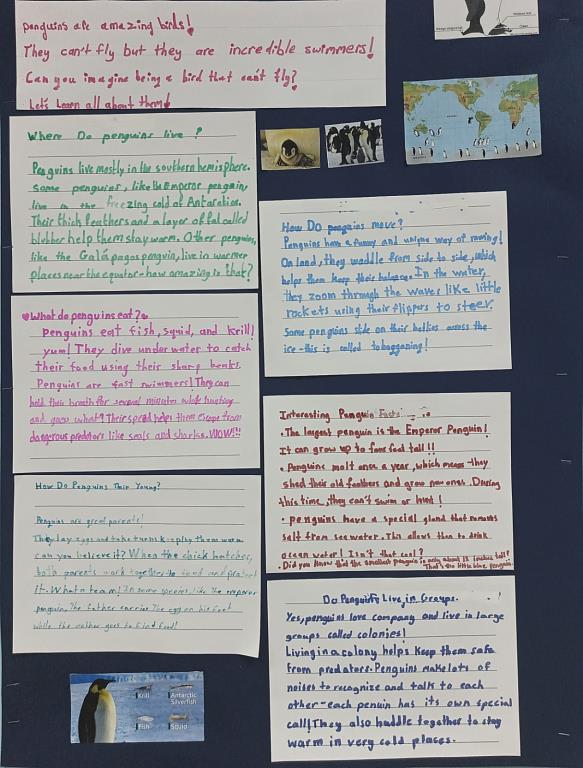 penguins are amazing birds!
They can't fly but they are incredible swimmers!
Can you imagine being a bird that can't fly?
Let's Learn all about them!
Where Do penguins live ?
Penguins live mostly in the southern hemisphere.
some penguins, like the Emperor penguin,
live in the freezing cold of Antarctica.
Their thick feathers and a layer of fat called
blubber help them stay warm. Other penguins,
like the Galápagos penguin, live in warmer
places near the equator-how amazing is that?
What do penguins eat?
Penguins eat fish, squid, and krill!
yum! They dive under water to catch
their food using their sharp beaks.
Penguins are fast swimmers! They can
hold their breath for several minutes while hunting
and guess what? Their speed helps them escape from
dangerous predators like seals and sharks. WOW!!!
How Do Penguins Their Young?
Penguins are great parents!
They lay eggs and take turns keeping them warm
can you believe it? When the chick hatches,
both parents work together to feed and protect
it. What a team! In some species, like the emperor
penguin, The father carries The egg on his feet
while the mother goes to find food!
Krill
Antarctic
Silverfish
fish
Squid
How Do penguins move?
Penguins have a funny and unique way of moving!
On land, they waddle from side to side, which
helps them keep their balance. In the water,
they zoom through the waves like little
rockets using their flippers to steer.
Some penguins slide on their bellies across the
ice-this is called tobogganing!
Interesting Penguin Facts
• The largest penguin is the Emperor Penguin!
It can grow up to four feet tall!!
• Penguins molt once a year, which means they
shed their old feathers and grow new ones. During
this time, they can't swim or hunt!
• penguins have a special gland that removes
salt from seewater. This allows them to drink
ocean water! Isn't that cool?
• Did you know that the smallest penguin is only about 13 inches tall?
That's the little blue penguin.
Do Penguins Live in Groups.
Yes, penguins love company and live in large
groups called colonies!
Living in a colony helps keep them safe
from predators. Penguins make lots of
noises to recognize and talk to each
other-each penuin has its own special
call! They also huddle together to stay
warm in very cold places.